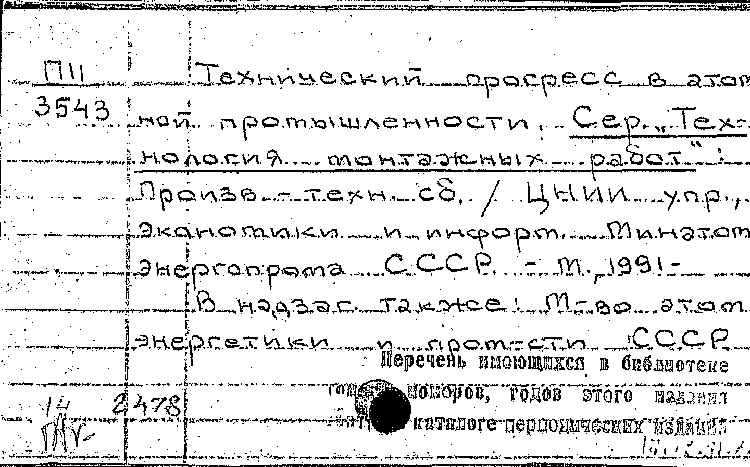 П11 Технический прогресс в атом
3543 ной промышленности. Сер. „Тех-
нология монтажных работ“:
Произв.-техн. сб. / ЦНИИ упр.,
экономики и информ. Минатом
энергопрома СССР. - М., 1991-
В надзаг. также: М-во атом
энергетики и пром-сти СССР
Перечень имеющихся в библиотеке
номеров, годов этого издания
каталоге периодических изданий
14 2478